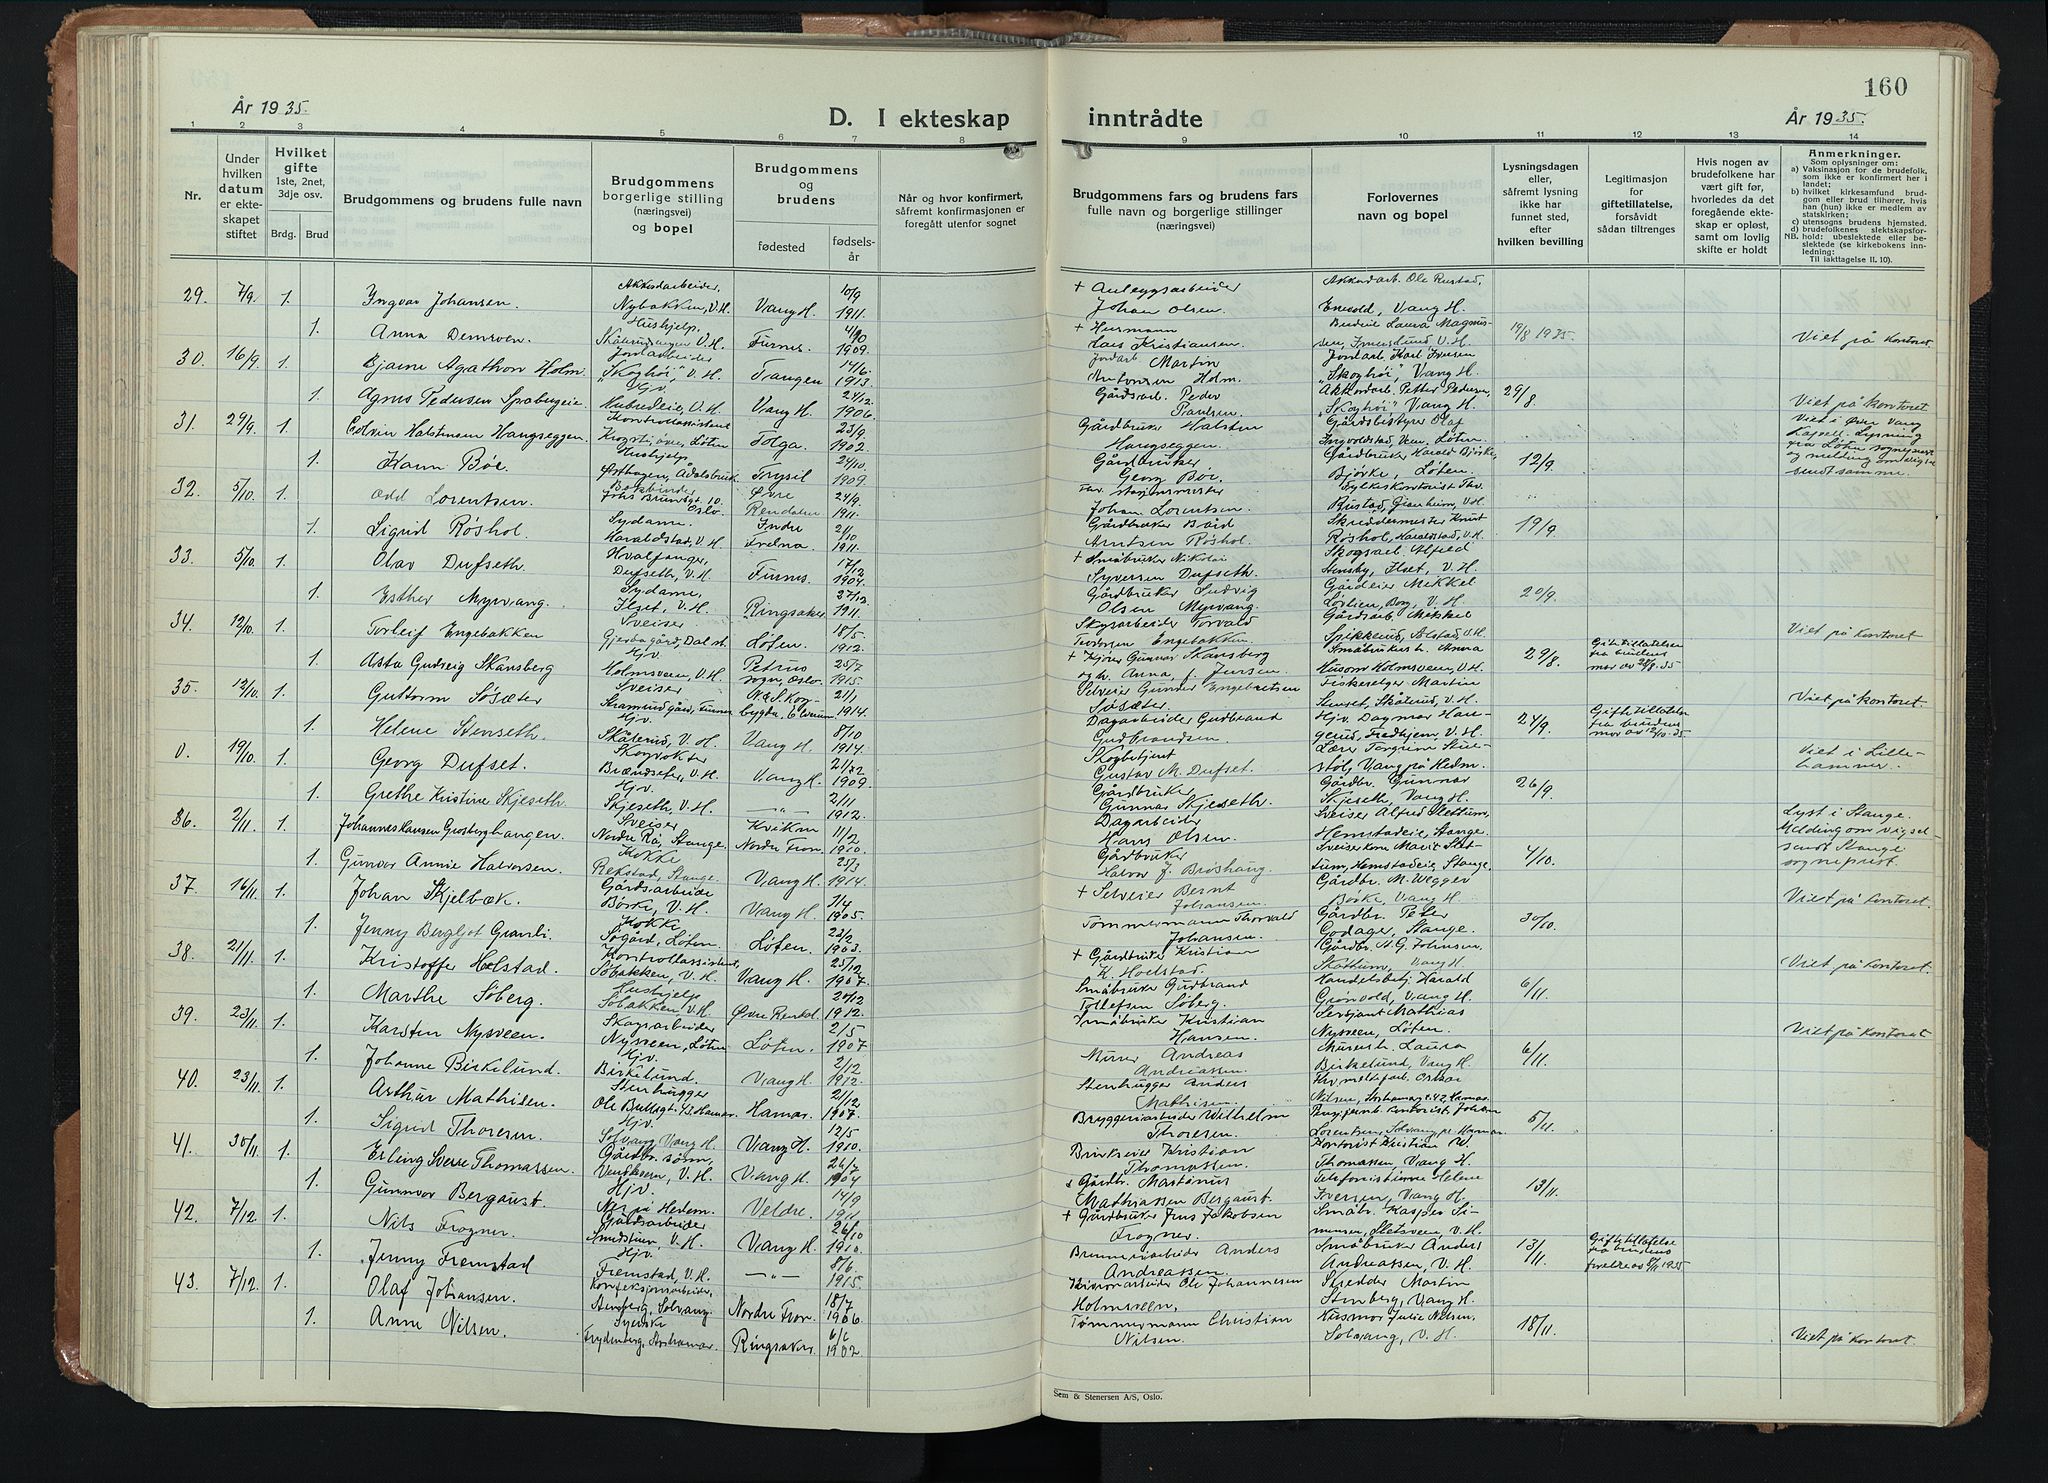 160
År 1935.
D. I ekteskap inntrådte
År 1935.
1 2 3 4 5 6 7 8 9 10 11 12 13 14
Nr.
Under hvilken datum er ekteskapet stiftet
Hvilket gifte
1ste, 2net, 3dje osv.
Brdg. Brud
Brudgommens og brudens fulle navn
Brudgommens borgerlige stilling (næringsvei) og bopel
Brudgommens og brudens
fødested
fødsels-år
Når og hvor konfirmert, såfremt konfirmasjonen er foregått utenfor sognet
Brudgommens fars og brudens fars fulle navn og borgerlige stillinger (næringsvei)
Forlovernes navn og bopel
Lysningsdagen eller, såfremt lysning ikke har funnet sted, efter hvilken bevilling
Legitimasjon for giftetillatelse, forsåvidt sådan tiltrenges
Hvis nogen av brudefolkene har vært gift før, hvorledes da det foregående ekteskap er opløst, samt om lovlig skifte er holdt
Anmerkninger.
Som oplysninger om:
a) Vaksinasjon for de brudefolk, som ikke er konfirmert her i landet;
b) hvilket kirkesamfund brudgom eller brud tilhører, hvis han (hun) ikke er medlem av statskirken;
c) utensogns brudens hjemsted.
d) brudefolkenes slektskapsforhold: ubeslektede eller beslektede (se kirkebokens innledning:
NB.
Til iakttagelse II. 10).
29. 7/9. 1. Yngvar Johansen. Akkordarbeider, Nybakken, V. H. Vang H. 10/9 1911. + Anleggsarbeider Johan Olsen. Akkordarb. Ole Rustad, Enevold, Vang H.
1. Anna Hushjelp. V. H. Furnes. 1909. + Husmann Hans Kristiansen. Laura Magnussen, V. H. 19/8 1935. Viet på kontoret.
30. 16/9. 1. Bjarne Agathon Holm. Jordarbeider "Skoghøi", V. H. Tangen 14/6. 1913. Jordarb. Martin Antonsen Holm. Jordarb. Karl Iversen "Skoghøi", Vang H.
1. Agnes Pedersen Hjv. V. H. Vang H. 24/12 1906. Gårdsarb. Peder Paulsen. Akkordarb. Petter Pedersen, "Skoghøi" Vang H. 29/8. Viet på kontoret.
31. 29/9. 1. Halstensen Hangseggen. Kontrollassistent Løten Tolga. 23/9. 1902. Gårdbruker Halsten Hangseggen. Gårdsbestyrer Olaf Ingvoldstad, Løten. Viet i Øvre Vang Kapell. Lysning fra Løten sogneprest og melding om vigsel sendt samme.
1. Karen Bøe. Hushjelp, Ådalsbruk. Trysil 24/10. 1909. Gårdbruker Georg Bøe. Gårdbruker Harald Bjørke, Bjørke, Løten. 12/9.
32. 5/10. 1. Odd Lorentsen. Oslo. Øvre Rendalen 24/9. 1911. Fhv. stasjonsmester Johan Lorentsen. Fylkeskontorist Thv. Rustad, V. H.
1. Sigrid Røshol. Sydame. Haraldstad, V. H. Indre 2/10 1911. Gårdbruker Bård Arntsen Røshol. Skreddermester Knut Røshol, Haraldstad, V. H. 19/9.
33. 5/10. 1. Olav Dufseth. Hvalfanger, Dufseth, V. H. Furnes. 17/12 1904. + Småbruker Nikolai Syversen Dufseth. Skogsarb. Alfred Stensby, Ilset, V. H.
1. Esther Myrvang. Sydame, Ilset, V. H. Ringsaker 27/12. 1911. Gårdbruker Ludvig Olsen Myrvang. Gårdeier Mikkel Løvlien, Borg, V. H. 20/9.
34. 12/10. 1. Torleif Engebakken Sveiser Løten. 18/5. 1912. Skogsarbeider Torvald Engebakken. Gårdsarb. Mikkel V. H. Viet på kontoret
1. Asta Gudveig Skansberg Hjv. Holmsveen, V. H. Petrus sogn, Oslo. 25/7 1915. + Kjører Gunnar Skansberg og h. Anna f. Jensen. Småbrukersk. Anna Husom Holmsveen, V. H. 29/8. Giftetillatelse fra brudens mor av 28/8. 35
35. 12/10. 1. Guttorm Søsæter Sveiser gård, Furnes Elverum 21/1 1914. Selveier Gunner Engebretsen Søsæter. Fiskeselger Martin Stenset, Skålerud, V. H. Viet på kontoret.
1. Helene Stenseth. Hjv. Skålerud, V. H. Vang H. 8/10 1914. Dagarbeider Gudbrand Gudbrandsen. Hjv. Dagmar Haugerud, Fredhjem, V. H. 24/9. Giftetillatelse fra brudens mor av 12/10. 35
0. 19/10. 1. Georg Dufset. Skogvokter V. H. Vang H. 1909. Skogbetjent Gustav M. Dufset. Lærer Torgrim Vang på Hedm. Viet i Lillehammer.
1. Grethe Kristine Skjeseth. Hjv. Skjeseth, V. H. —"— 2/11 1912. Gårdbruker Gunnar Skjeseth. Gårdbr. Gunnar Skjeseth, Vang H. 26/9.
36. 2/11. 1. Johannes Hansen Grosberghaugen. Sveiser Nordre Rå, Stange. Nordre Fron. 11/2 1910. Dagarbeider Hans Olsen. Sveiser Alfred Slettum, Hemstadeie, Stange. Lyst i Stange. Melding om vigsel sendt Stange sogneprest.
1. Gunvor Annie Halvorsen. Kokke Rekstad, Stange. Vang H. 25/3 1914. Gårdbruker Halvor J. Brøshaug. Sveiserkone Marit Slettum, Hemstadeie, Stange. 4/10.
37. 16/11. 1. Johan Skjelbæk. Gårdsarbeider Børke, V. H. Vang H. 7/4 1905. + Selveier Bernt Johansen. Gårdbr. M. Wegger Børke, Vang H. Viet på kontoret.
1. Jenny Bergljot Granli. Kokke Søgård, Løten. Løten. 23/2 1903. Tømmermann Thorvald Johansen. Gårdbr. Peter Godager, Stange. 30/10.
38. 21/11. 1. Kristoffer Holstad. Kontrollassistent, Søbakken, V. H. Vang H. 25/12 1907. + Gårdbruker Kristian K. Hoelstad. Gårdbr. N. G. Johnsen, Skattum, Vang H. Viet på kontoret.
1. Marthe Søberg. Hushjelp Søbakken V. H. Øvre Rendal. 20/12 1912. Småbruker Gudbrand Tollefsen Søberg. Handelsbetj. Harald Grønvold, Vang H. 6/11.
39. 23/11. 1. Karsten Nysveen. Skogsarbeider Nysveen, Løten Løten. 2/5 1907 Småbruker Kristian Hansen. Sersjant Mathias Nysveen, Løten. Viet på kontoret
1. Johanne Birkelund. Hjv. Birkelund. Vang H. 2/12 1912. Murer Andreas Andreassen. Laura Birkelund, Vang H. 6/11.
40. 23/11. 1. Arthur Mathisen. Stenhugger Ole Bullsgt. Hamar. Hamar. 2/12 1907. Stenhugger Anders Mathisen. Oskar Nilsen, 42, Hamar.
1. Sigrid Thoresen. Hjv. Solvang, Vang H. Vang H. 12/5 1910. Bryggeriarbeider Wilhelm Thoresen. Johan Lorentzen, Solvang pr. Hamar. 5/11
41. 30/11. 1. Erling Sverre Thomassen. Gårdbr. sønn, V. H. Vang H. 26/7 1904 Kristian Thomassen. Kontorist Kristian W. Thomassen, Vang H.
1. Gunnvor Bergaust. Hjv. Nes på Hedem. Veldre. 14/9 1911 + Gårdbr. Martinus Mathiassen Bergaust. Telefonistinne Helene Iversen, Vang H. 13/11.
42. 7/12. 1. Nils Frogner. Gårdsarbeider V. H. Vang H. 26/10 1910. + Gårdbruker Jens Jakobsen Frogner. Småbr. Kasper Simensen, Sletsveen, V. H.
1. Jenny Fremstad Hjv. Fremstad, V. H. —"— 8/6. 1915. Anders Andreassen. Småbruker Anders Andreassen, V. H. 13/11. Giftetillatelse fra brudens foreldre av 8/11 1935
43. 7/12. 1. Olaf Johansen. Konfeksjonsarbeider, Solvang Nordre Fron. 18/7 1906 Ole Johannesen Holmsveen, Skredder Martin Stenberg, Vang H.
1. Anne Nilsen. Syerske Frydenberg, Ringsaker. 6/6 1902. Tømmermann Christian Nilsen. Husmor Julie Nilsen, Solvang, V. H. 18/11. Viet på kontoret.
Sem & Stenersen A/S, Oslo.